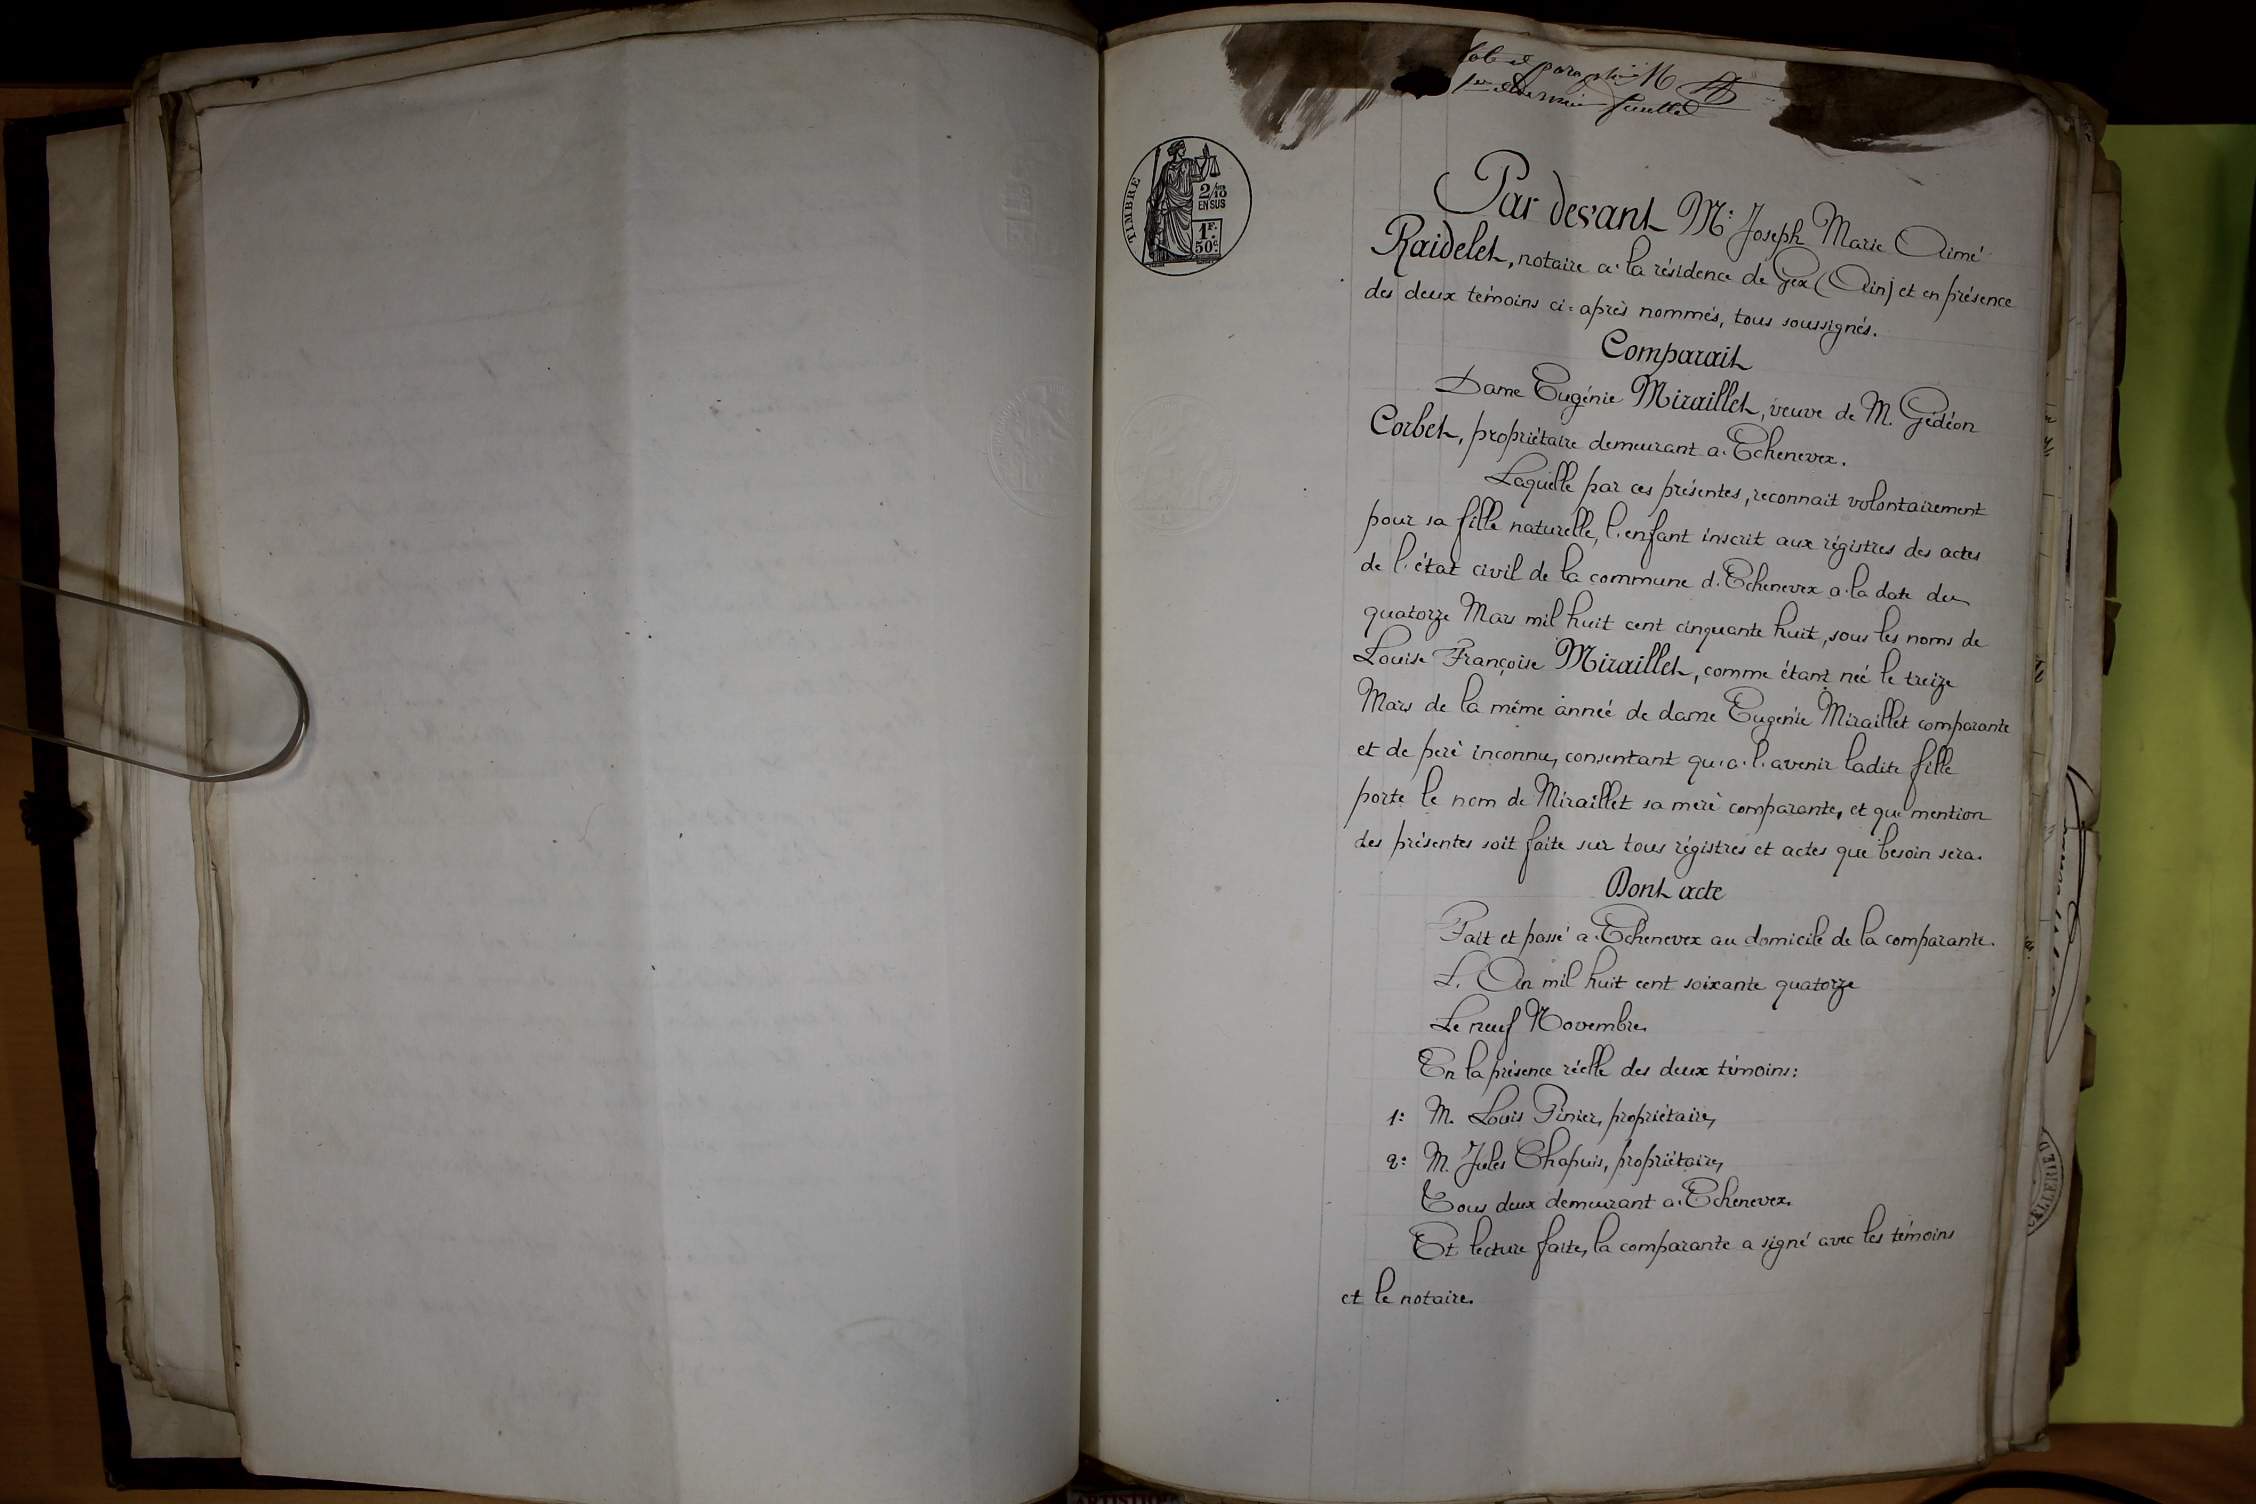 1er et dernier feuillet
TIMBRE
2/10
EN SUS
1F.
50c.
Par devant Me Joseph Marie Aimé
Raidelet, notaire a la résidence de Gex (Ain) et en présence
des deux témoins ci=après nommés, tous soussignés.
Comparait
Dame Eugénie Miraillet, veuve de M. Gédéon
Corbet, propriétaire demeurant a Echenevex.
Laquelle par ces présentes, reconnait volontairement
pour sa fille naturelle, l'enfant inscrit aux régistres des actes
de l'état civil de la commune d'Echenevex a la date du
quatorze Mars mil huit cent cinquante huit, sous les noms de
Louise Françoise Miraillet, comme étant neé le treize
Mars de la même anneé de dame Eugenie Miraillet comparante
et de peré inconnu, consentant qu'a l'avenir ladite fille
porte le nom de Miraillet sa meré comparante, et que mention
des présentes soit faite sur tous régistres et actes que besoin sera.
Dont acte
Fait et passé a Echenevex au domicile de la comparante.
L'An mil huit cent soixante quatorze
Le neuf Novembre.
En la présence réelle des deux témoins:
1: M. Louis Pinier, propriétaire,
2: M. Jules Chapuis, propriétaire,
Tous deux demeurant a Echenevex.
Et lecture faite, la comparante a signé avec les témoins
et le notaire.